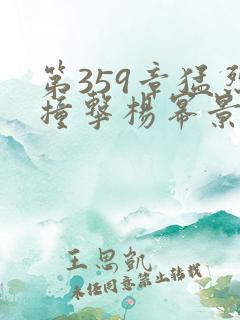 第359章猛烈
撞擊楊冪景
王思凱
未经同意禁止转载